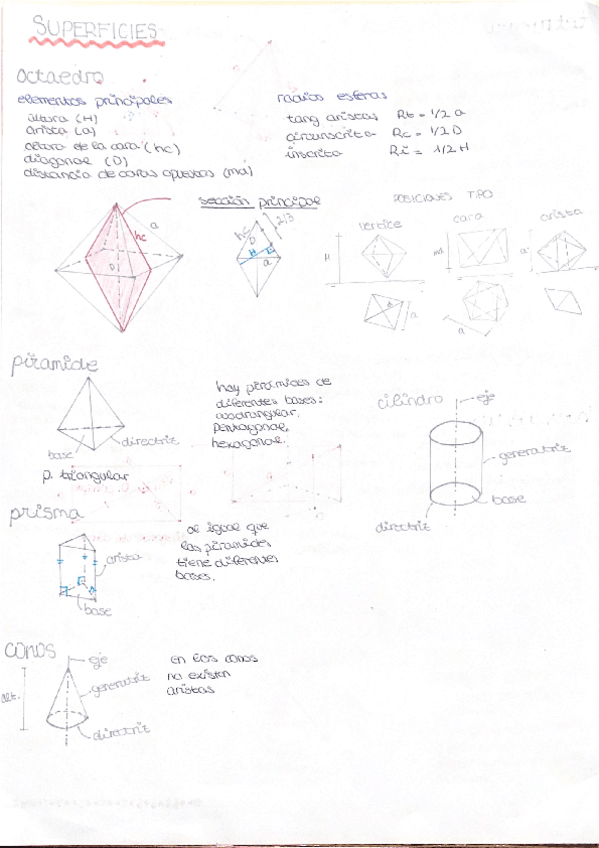 SUPERFICIES
octaedro
elementos principales
altura (H)
arista (a)
altura de la cara (hc)
diagonal (D)
distancia de caras opuestas (md)
radios esferas
tang aristas Rt = 1/2 a
circunscrita Rc = 1/2 D
inscrita Ri = 1/2 H
sección principal
POSICIONES TIPO
vertice
cara
arista
a
hc
D
hc
2/3
D
H
a
H
md
a
a
a
piramide
base
directriz
p. triangular
hay piramides de
diferentes bases:
cuadrangular,
pentagonal,
hexagonal.
cilindro
eje
generatriz
base
directriz
prisma
arista
base
al igual que
las piramides
tiene diferentes
bases.
conos
eje
generatriz
alt.
directriz
en los conos
no existen
aristas